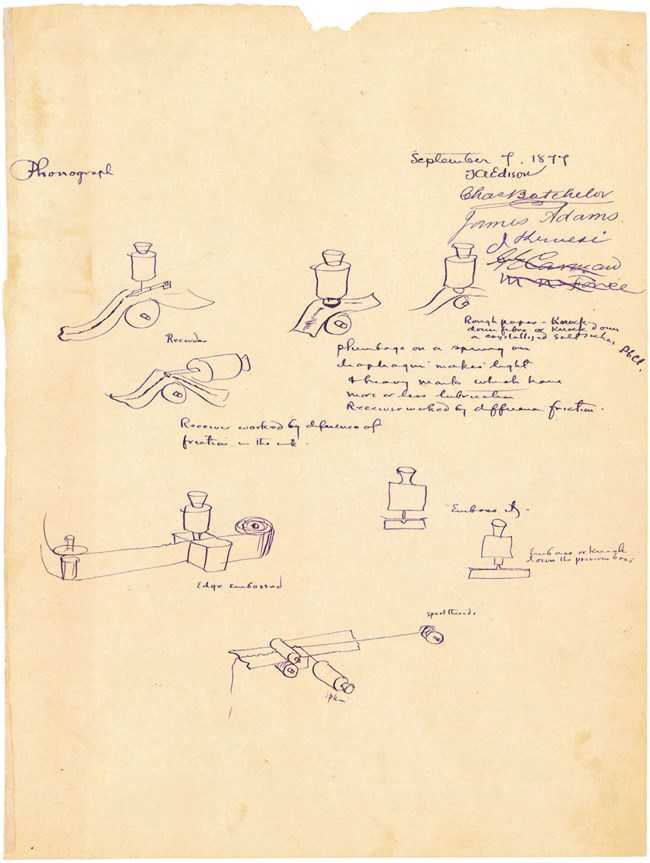 Phonograph
September 7. 1877
TAEdison
Chas Batchelor
James Adams.
J Kruesi
Rough paper - Knock
down fibre or Knock down
a crystallized
Recorder
plumbago on a spring on
diaphragm makes light
& heavy marks which have
more or less lubrication
Receiver worked by difference friction.
Receiver worked by difference of
friction in the ink.
Emboss it.
Emboss or Knock
down the previous
Edge embossed
spool thread.